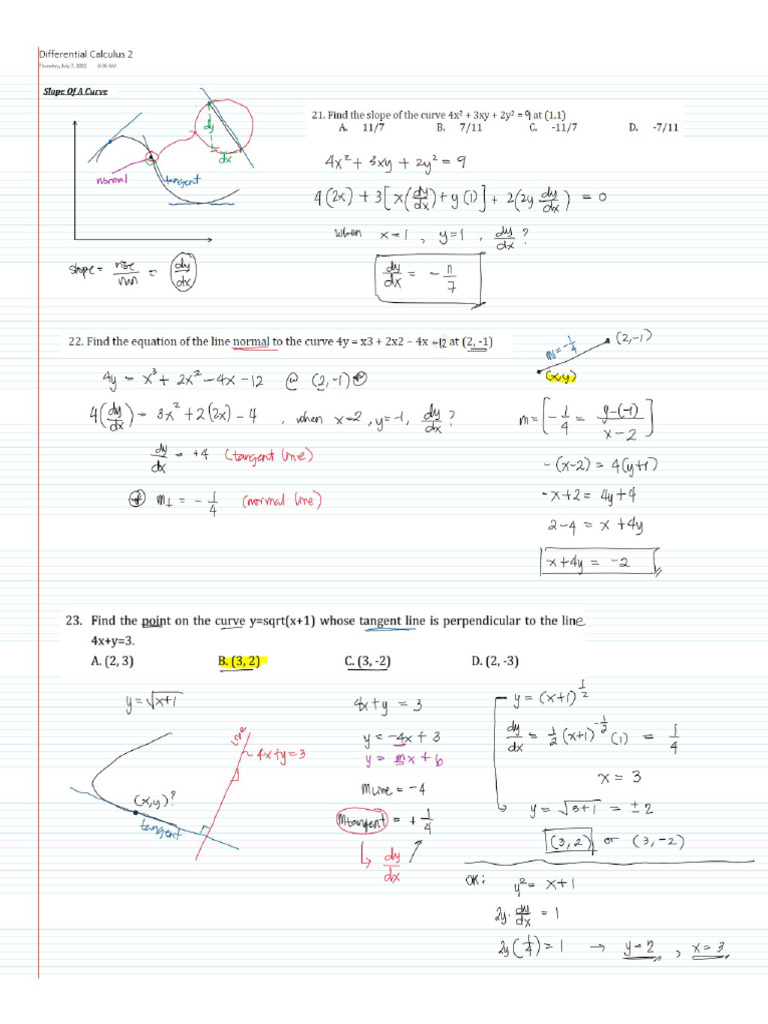 Differential Calculus 2
Thursday, July 7, 2022 8:06 AM
Slope Of A Curve
dy
dx
normal
tangent
slope = rise/run = dy/dx
21. Find the slope of the curve 4x² + 3xy + 2y² = 9 at (1,1)
A. 11/7 B. 7/11 C. -11/7 D. -7/11
4x² + 3xy + 2y² = 9
4(2x) + 3[x(dy/dx) + y(1)] + 2(2y dy/dx) = 0
when x=1, y=1, dy/dx?
dy/dx = -11/7
22. Find the equation of the line normal to the curve 4y = x3 + 2x2 – 4x -12 at (2, -1)
4y = x³ + 2x² - 4x - 12 @ (2,-1)
4(dy/dx) = 3x² + 2(2x) - 4, when x=2, y=-1, dy/dx?
dy/dx = +4 (tangent line)
m⊥ = -1/4 (normal line)
m=-1/4
(2,-1)
(x,y)
m = [-1/4 = y-(-1)/x-2]
-(x-2) = 4(y+1)
-x+2 = 4y+4
2-4 = x+4y
x+4y = -2
23. Find the point on the curve y=sqrt(x+1) whose tangent line is perpendicular to the line
4x+y=3.
A. (2, 3) B. (3, 2) C. (3, -2) D. (2, -3)
y=√x+1
line
4x+y=3
(x,y)?
tangent
4x+y = 3
y = -4x + 3
y = mx + b
mline = -4
mtangent = +1/4
dy/dx
y = (x+1)^1/2
dy/dx = 1/2 (x+1)^-1/2 (1) = 1/4
x = 3
y = √3+1 = ±2
(3,2) or (3,-2)
OR: y² = x+1
2y·dy/dx = 1
2y(1/4) = 1 → y=2, x=3